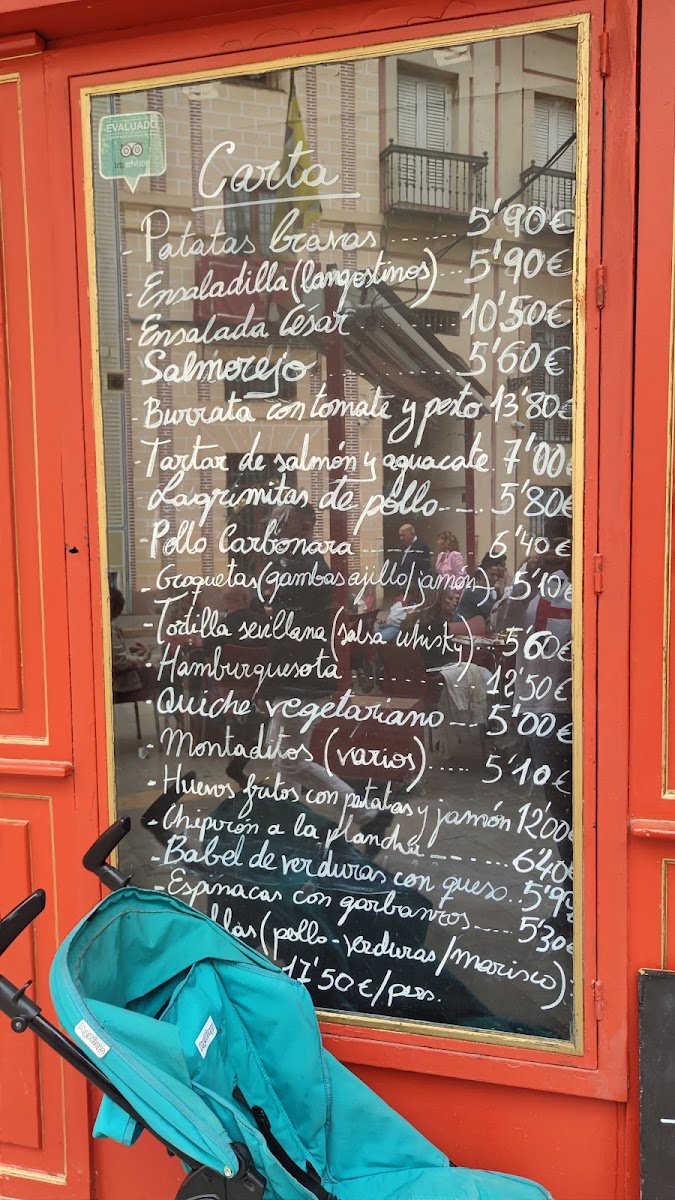 EVALUADO
tripadvisor
Carta
- Patatas bravas ------ 5'90€
- Ensaladilla (langostinos) ... 5'90€
- Ensalada César ....... 10'50€
- Salmorejo ......... 5'60€
- Burrata con tomate y pesto 13'80€
- Tartar de salmón y aguacate. 7'00€
- Lagrimitas de pollo -- -. 5'80€
- Pollo Carbonara ------- 6'40€
- Croquetas (gambas ajillo/jamón). 5'10€
- Tortilla sevillana (salsa whisky) ... 5'60€
- Hamburguesota ....... 12'50€
- Quiche vegetariano --- 5'00€
- Montaditos (varios) ..... 5'10€
- Huevos fritos con patatas y jamón 12'00€
- Chipirón a la plancha ------- 6'40€
- Babel de verduras con queso. . 5'99
- Espinacas con garbanzos ----- 5'30€
(pollo-verduras/marisco)
17'50€/pers.